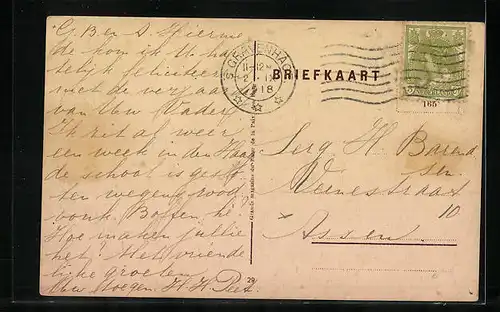 G. B. en S. Hierme
de kom ik U har
telijk feliciteer
met de verjaar
van Uw Vader
Ik zit al weer
een week in den Haag
de school is geslo
ten wegens
vonk. Boffen, hè!
Hoe maken jullie
het? Met vriende
lijke groeten
Uw H. H.
'S GRAVENHAGE
1918
BRIEFKAART
NEDERLAND
165
Serg H. Barend
Sen.
Venestraat
10
Assen
29